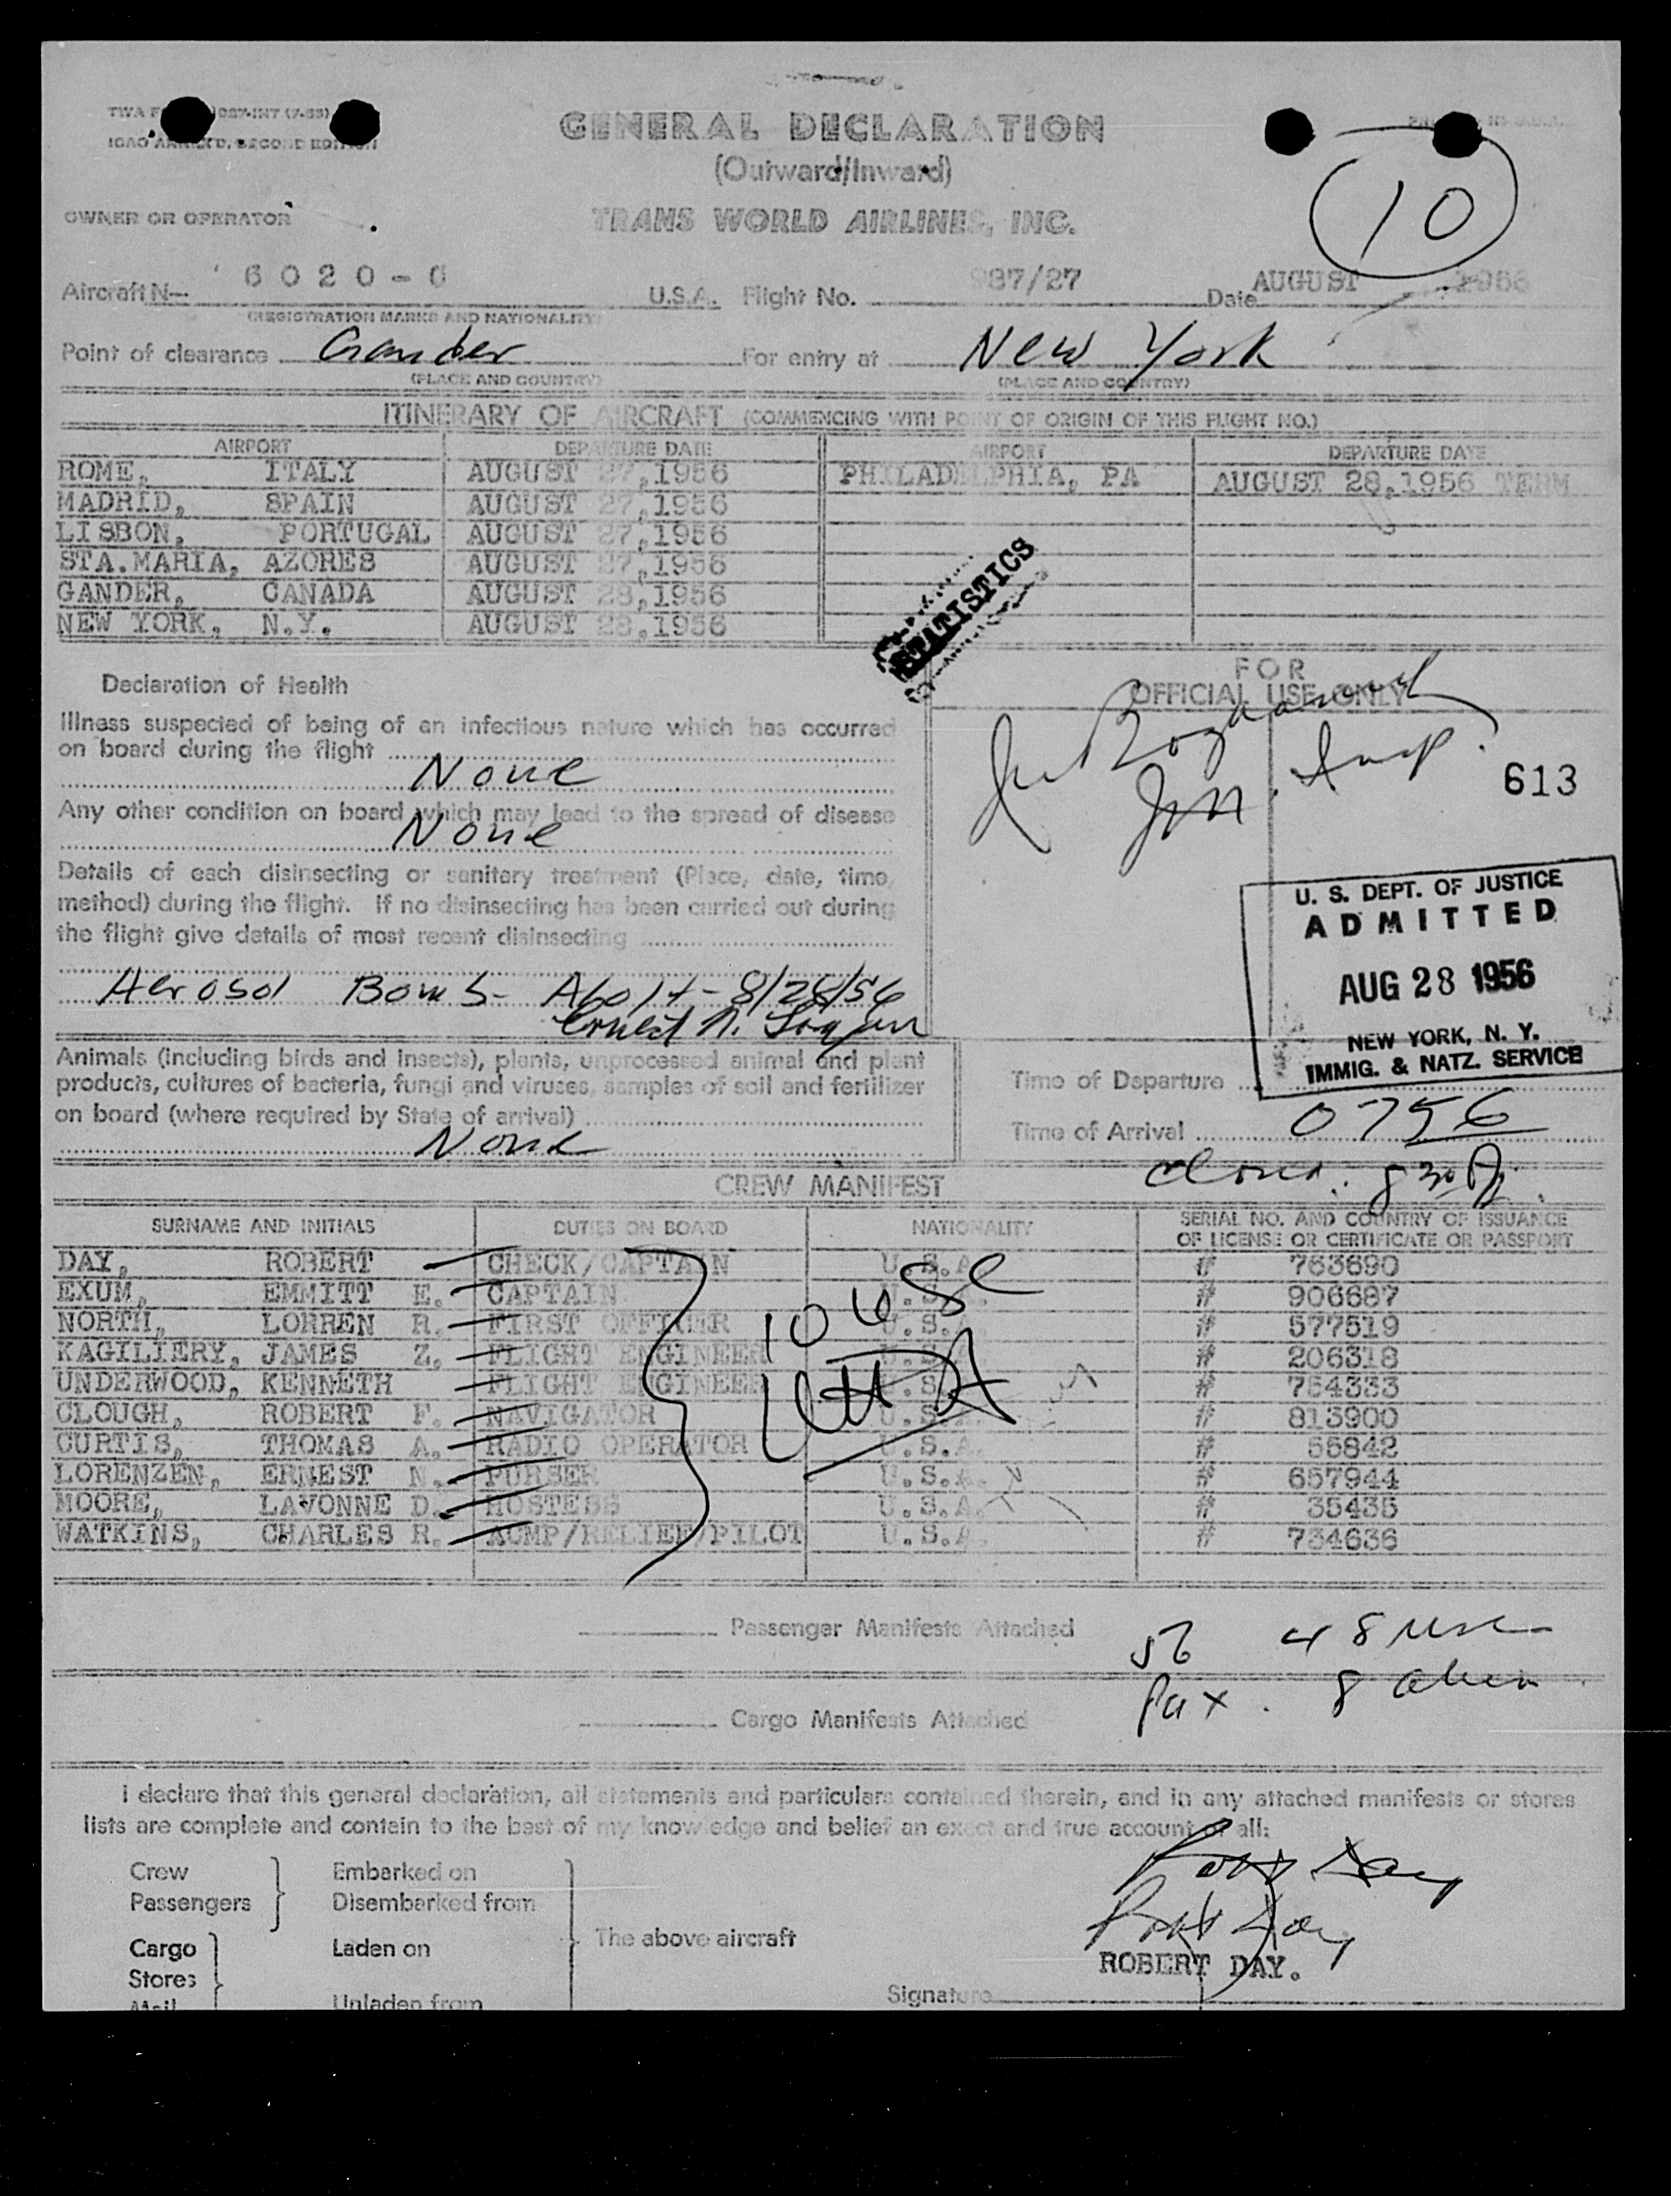 GENERAL DECLARATION
(Outward/Inward)
10
OWNER OR OPERATOR TRANS WORLD AIRLINES, INC.
Aircraft N- 6020-C U.S.A. Flight No. 937/27 Date AUGUST 1956
(REGISTRATION MARKS AND NATIONALITY)
Point of clearance Gander For entry at New York
(PLACE AND COUNTRY) (PLACE AND COUNTRY)
ITINERARY OF AIRCRAFT (COMMENCING WITH POINT OF ORIGIN OF THIS FLIGHT NO.)
AIRPORT DEPARTURE DATE AIRPORT DEPARTURE DATE
ROME, ITALY AUGUST 27,1956 PHILADELPHIA, PA AUGUST 28,1956 TERM
MADRID, SPAIN AUGUST 27,1956
LISBON, PORTUGAL AUGUST 27,1956
STA.MARIA, AZORES AUGUST 27,1956
GANDER, CANADA AUGUST 28,1956
NEW YORK, N.Y. AUGUST 28,1956
STATISTICS
Declaration of Health
FOR
OFFICIAL USE ONLY
Illness suspected of being of an infectious nature which has occurred
on board during the flight
None
Imm. Insp.
613
Any other condition on board which may lead to the spread of disease
None
Details of each disinsecting or sanitary treatment (Place, date, time,
method) during the flight. If no disinsecting has been carried out during
the flight give details of most recent disinsecting
Aerosol Bomb - 8/28/56
Ernest N.
U. S. DEPT. OF JUSTICE
ADMITTED
AUG 28 1956
NEW YORK, N. Y.
IMMIG. & NATZ. SERVICE
Animals (including birds and insects), plants, unprocessed animal and plant
products, cultures of bacteria, fungi and viruses, samples of soil and fertilizer
on board (where required by State of arrival)
None
Time of Departure
Time of Arrival 0756
CREW MANIFEST
SURNAME AND INITIALS DUTIES ON BOARD NATIONALITY SERIAL NO. AND COUNTRY OF ISSUANCE
OF LICENSE OR CERTIFICATE OR PASSPORT
DAY, ROBERT CHECK/CAPTAIN U.S.A. # 763690
EXUM, EMMITT E. CAPTAIN U.S.A. # 906687
NORTH, LORREN R. FIRST OFFICER U.S.A. # 577519
KAGILIERY, JAMES Z. FLIGHT ENGINEER U.S.A. # 206318
UNDERWOOD, KENNETH FLIGHT ENGINEER U.S.A. # 754333
CLOUGH, ROBERT F. NAVIGATOR U.S.A. # 813900
CURTIS, THOMAS A. RADIO OPERATOR U.S.A. # 55842
LORENZEN, ERNEST N. PURSER U.S.A. # 657944
MOORE, LAVONNE D. HOSTESS U.S.A. # 35435
WATKINS, CHARLES R. ACMP/RELIEF/PILOT U.S.A. # 734636
10 USC
Passenger Manifests Attached
56 48 USC
Pax. 8 alien
Cargo Manifests Attached
I declare that this general declaration, all statements and particulars contained therein, and in any attached manifests or stores
lists are complete and contain to the best of my knowledge and belief an exact and true account of all:
Crew Embarked on
Passengers Disembarked from
Cargo Laden on The above aircraft
Robt Day
Stores
ROBERT DAY.
Mail Unladen from Signature